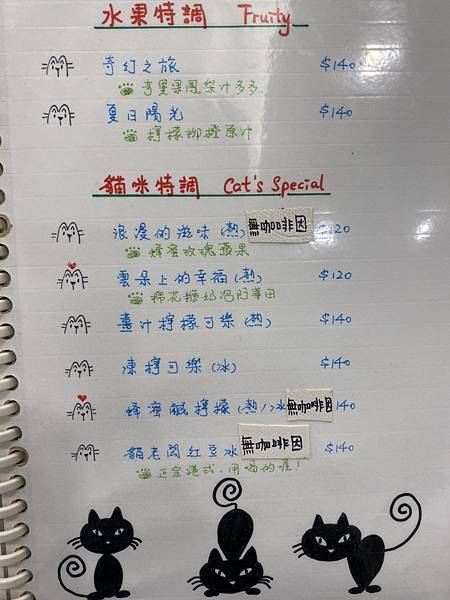 水果特調 Fruity
奇幻之旅 $140
奇異果鳳梨汁多多
夏日陽光 $140
檸檬柳橙原汁
貓咪特調 Cat's Special
浪漫的滋味(熱) 無咖啡因 $120
蜂蜜玫瑰蘋果
雲朵上的幸福(熱) $120
棉花糖奶泡阿華田
薑汁檸檬可樂(熱) $140
凍檸可樂(冰) $140
蜂蜜鹹檸檬(熱/冰 無咖啡因 140
貓老闆紅豆冰 無咖啡因 $140
正宗港式,用喝的喔!